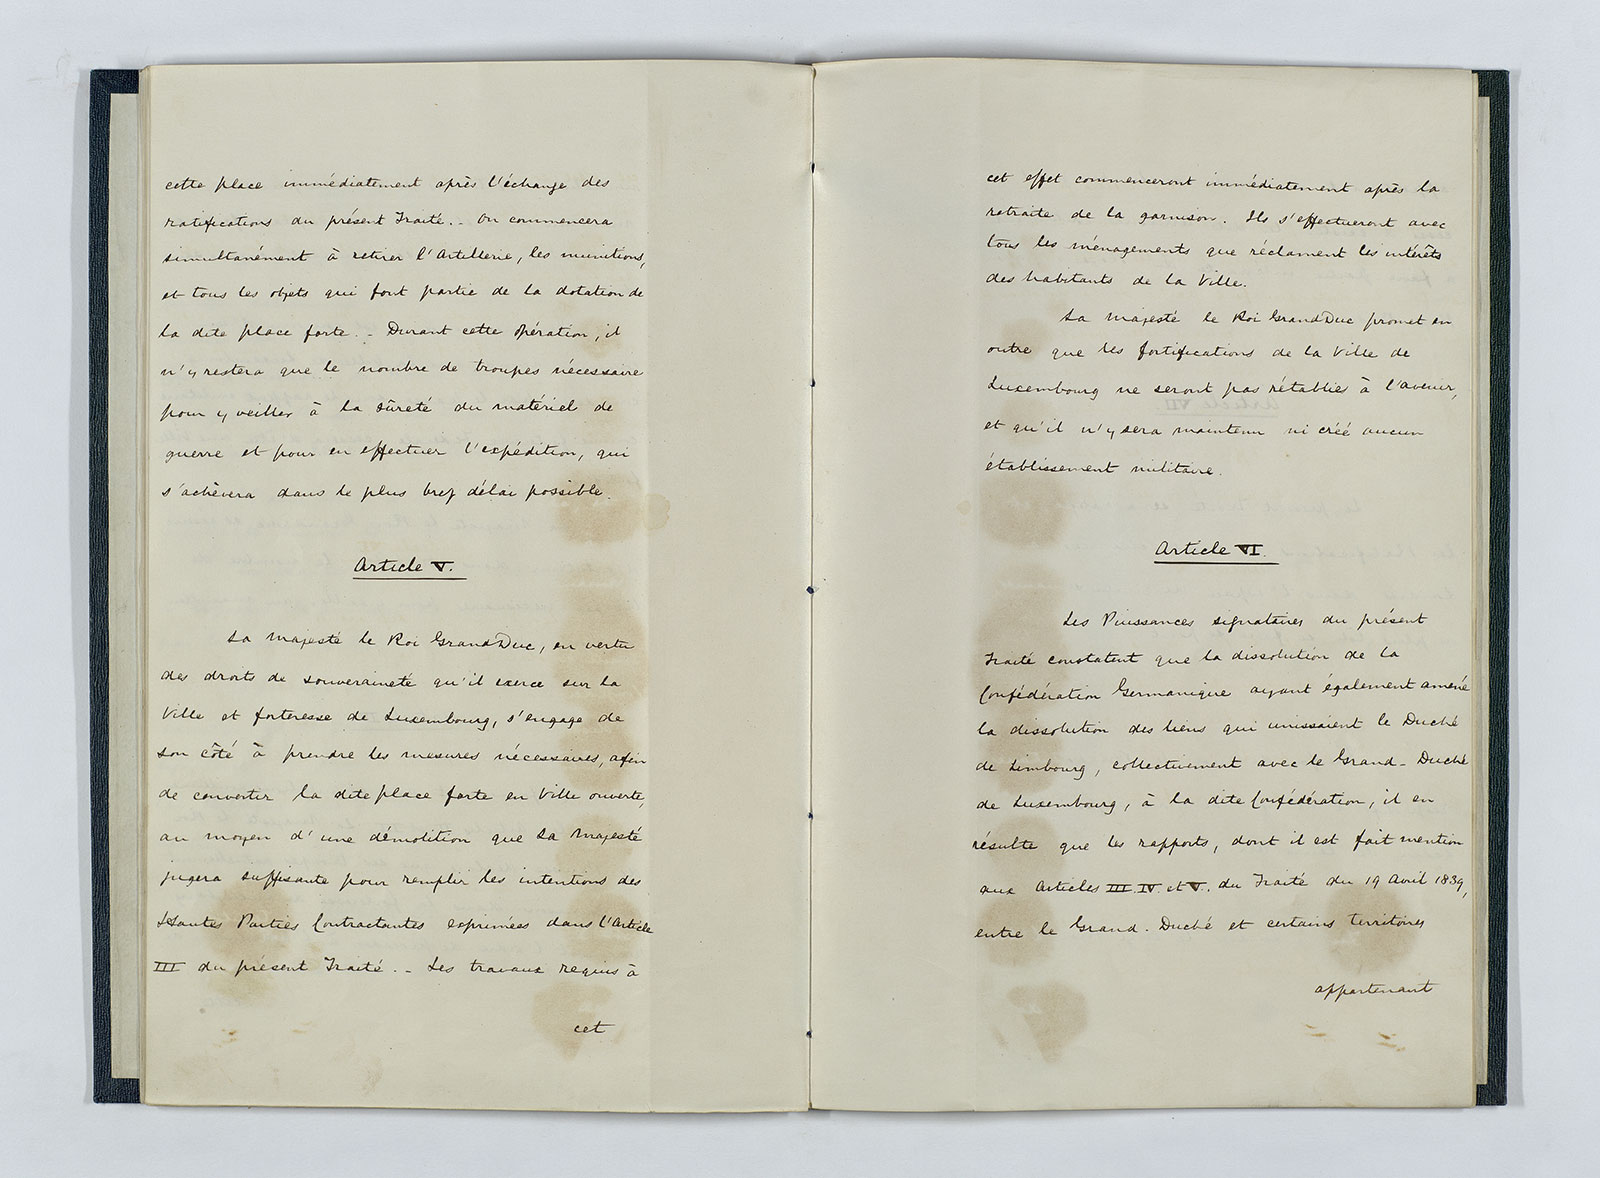 cette place immédiatement après l'échange des
ratifications du présent Traité. - On commencera
simultanément à retirer l'Artillerie, les munitions,
et tous les objets qui font partie de la dotation de
la dite place forte. - Durant cette opération, il
n'y restera que le nombre de troupes nécessaire
pour y veiller à la sûreté du matériel de
guerre et pour en effectuer l'expédition, qui
s'achèvera dans le plus bref délai possible.
Article V.
Sa Majesté le Roi Grand Duc, en vertu
des droits de souveraineté qu'il exerce sur la
Ville et forteresse de Luxembourg, s'engage de
son côté à prendre les mesures nécessaires, afin
de convertir la dite place forte en Ville ouverte,
au moyen d'une démolition que Sa Majesté
jugera suffisante pour remplir les intentions des
Hautes Parties Contractantes exprimées dans l'Article
III du présent Traité. - Les travaux requis à
cet
cet effet commenceront immédiatement après la
retraite de la garnison. Ils s'effectueront avec
tous les ménagements que réclament les intérêts
des habitants de la Ville.
Sa Majesté le Roi Grand Duc promet en
outre que les fortifications de la Ville de
Luxembourg ne seront pas rétablies à l'avenir,
et qu'il n'y sera maintenu ni créé aucun
établissement militaire.
Article VI.
Les Puissances signataires du présent
Traité constatent que la dissolution de la
Confédération Germanique ayant également amené
la dissolution des liens qui unissaient le Duché
de Limbourg, collectivement avec le Grand-Duché
de Luxembourg, à la dite Confédération, il en
résulte que les rapports, dont il est fait mention
aux Articles III. IV. et V. du Traité du 19 Avril 1839,
entre le Grand-Duché et certains territoires
appartenant